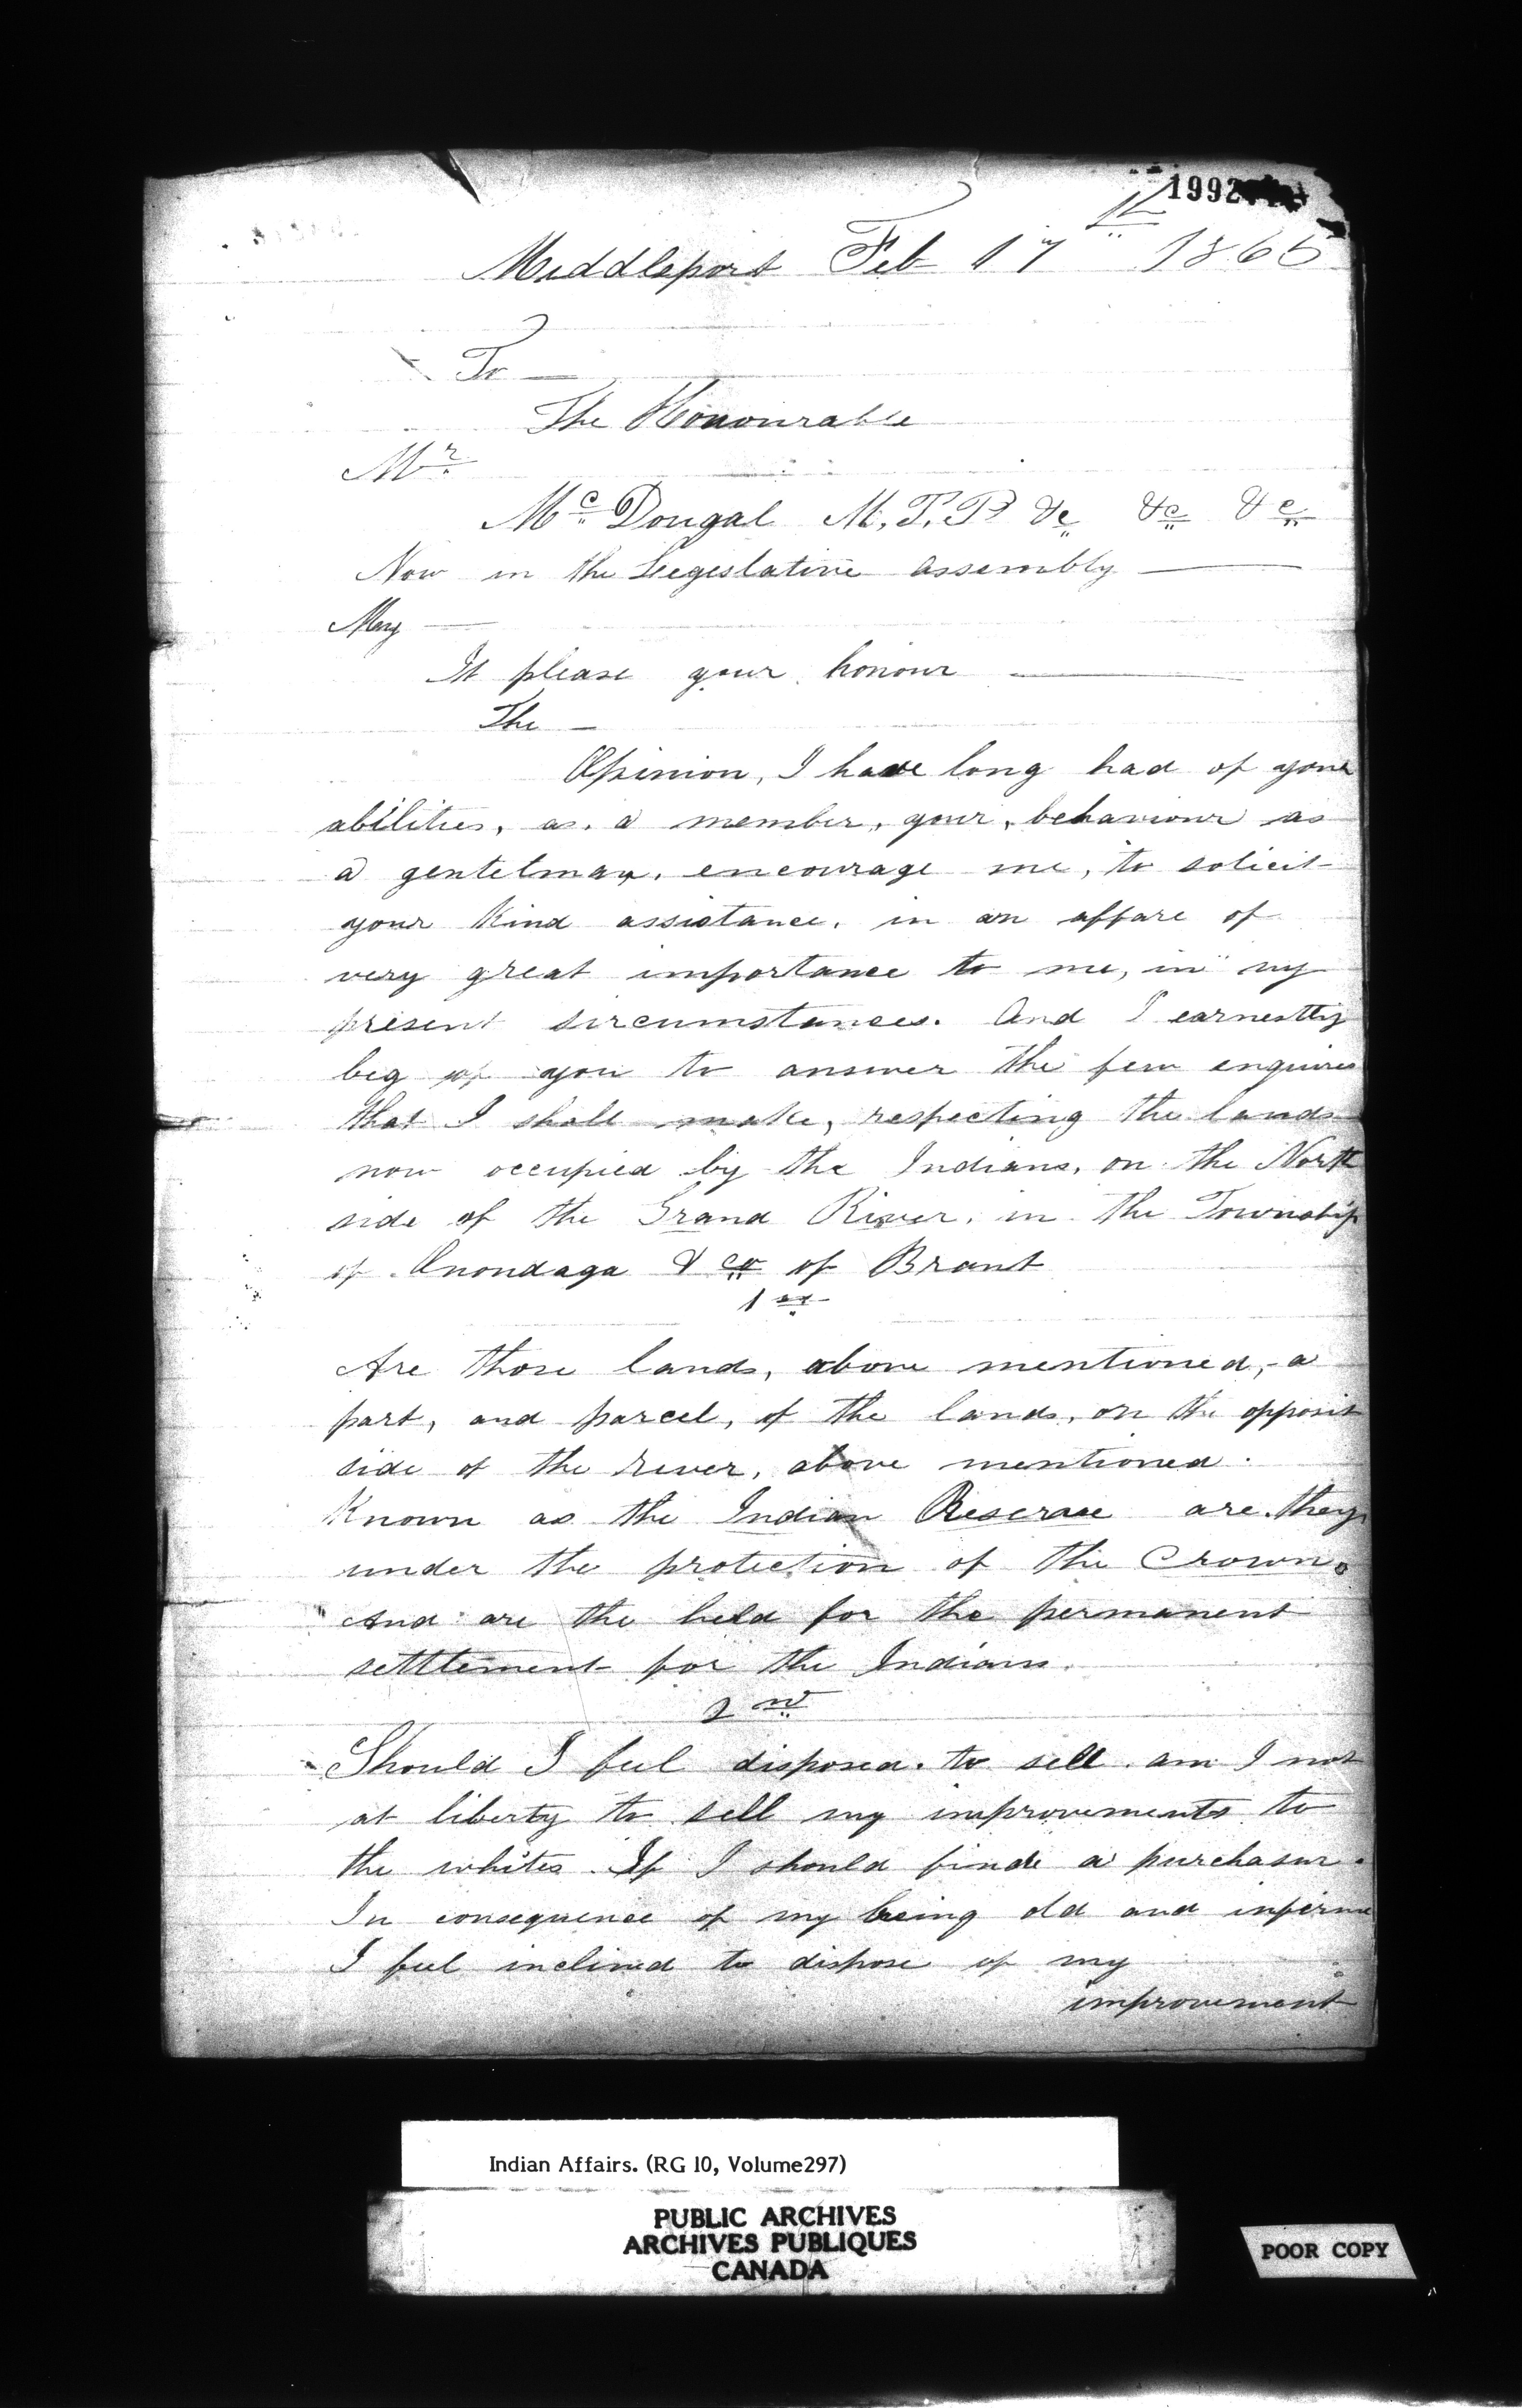 1992
Middleport Feb 17th 1865
To —
The Honourable
Mr
McDougal M.P.P &c &c &c
Now in the Leegeslative assembly —
May —
It please your honour —
The —
Opinion, I have long had of your
abilities, as, a member, your, behaviour as
a gentelman, encourage me, to solicit
your kind assistance, in an affare of
very great importance to me, in my
present sircumstances. And I earnestly
beg of you to answer the few enquires
that I shall make, respecting the lands
now occupied by the Indians, on the North
side of the Grand River, in the Township
of Onondaga & co of Brant
1st
Are those lands, above mentioned, a
part, and parcel, of the lands, on the opposit
side of the river, above mentioned.
Known as the Indian Reserve are they
under the protection of the Crown.
And are the held for the permanent
settlement for the Indians.
2nd
Should I feel disposed to sell am I not
at liberty to sell my improvements to
the whites. If I should finde a purchaser.
In consequence of my being old and inferme
I feel inclined to dispose of my
improvement
Indian Affairs. (RG 10, Volume297)
PUBLIC ARCHIVES
ARCHIVES PUBLIQUES
CANADA
POOR COPY